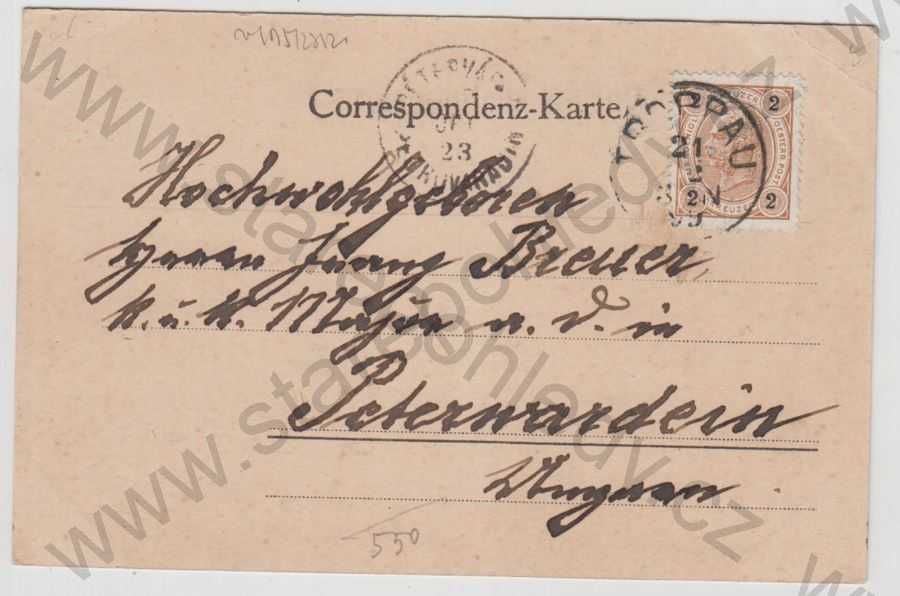 Correspondenz-Karte.
TROPPAU
21
2 2
2 2
23
Hochwohlgeboren
Herrn Franz Breuer,
k. u. k. Major a. D. in
Peterwardein
Ungarn
550
www.starepohledy.cz